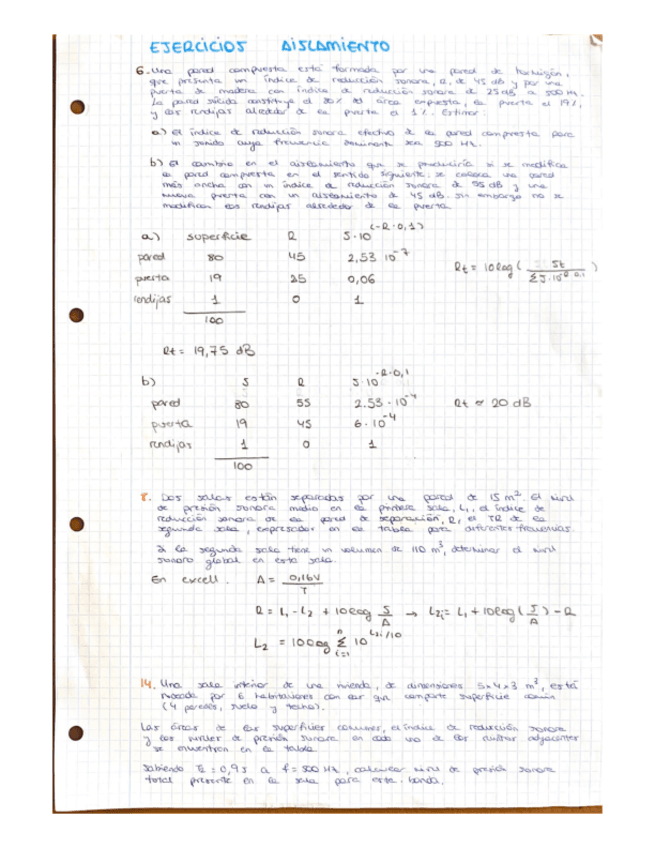 EJERCICIOS AISLAMIENTO
6. Una pared compuesta está formada por una pared de hormigón,
que presenta un índice de reducción sonora, R, de 45 dB y por una
puerta de madera con índice de reducción sonora de 25 dB a 500 Hz.
La pared sólida constituye el 80% del área expuesta, la puerta el 19%,
y las rendijas alrededor de la puerta el 1%. Estimar:
a) El índice de reducción sonora efectivo de la pared compuesta para
un sonido cuya frecuencia dominante sea 500 Hz.
b) El cambio en el aislamiento que se produciría si se modifica
la pared compuesta en el sentido siguiente: se coloca una pared
más ancha con un índice de reducción sonora de 55 dB y una
nueva puerta con un aislamiento de 45 dB. Sin embargo no se
modifican las rendijas alrededor de la puerta
a) superficie R S·10^(-R·0,1)
pared 80 45 2,53 10^-7
puerta 19 25 0,06
rendijas 1 0 1
100
Rt = 10 log ( St / ΣS·10 )
Rt = 19,75 dB
b) S R S·10^-R·0,1
pared 80 55 2.53 · 10^-4
puerta 19 45 6 · 10^-4
rendijas 1 0 1
100
Rt ≈ 20 dB
8. Dos salas están separadas por una pared de 15 m². El nivel
de presión sonora medio en la primera sala, L1, el índice de
reducción sonora de la pared de separación, R, el TR de la
segunda sala, expresados en la tabla para diferentes frecuencias.
Si la segunda sala tiene un volumen de 110 m³, determinar el nivel
sonoro global en esta sala.
En excell. A = 0,16V / T
R = L1 - L2 + 10 log S/A → L2i = L1 + 10 log ( S/A ) - R
L2 = 10 log Σ i=1 n 10^L2i/10
14. Una sala interior de una vivienda, de dimensiones 5x4x3 m³, está
rodeada por 6 habitaciones con las que comparte superficie común
(4 paredes, suelo y techo).
Las áreas de las superficies comunes, el índice de reducción sonora
y los niveles de presión sonora en cada uno de los adyacentes
se muestran en la tabla.
Sabiendo = 0,9 s a f = 500 Hz, calcular nivel de presión sonora
total presente en la sala para esta banda.